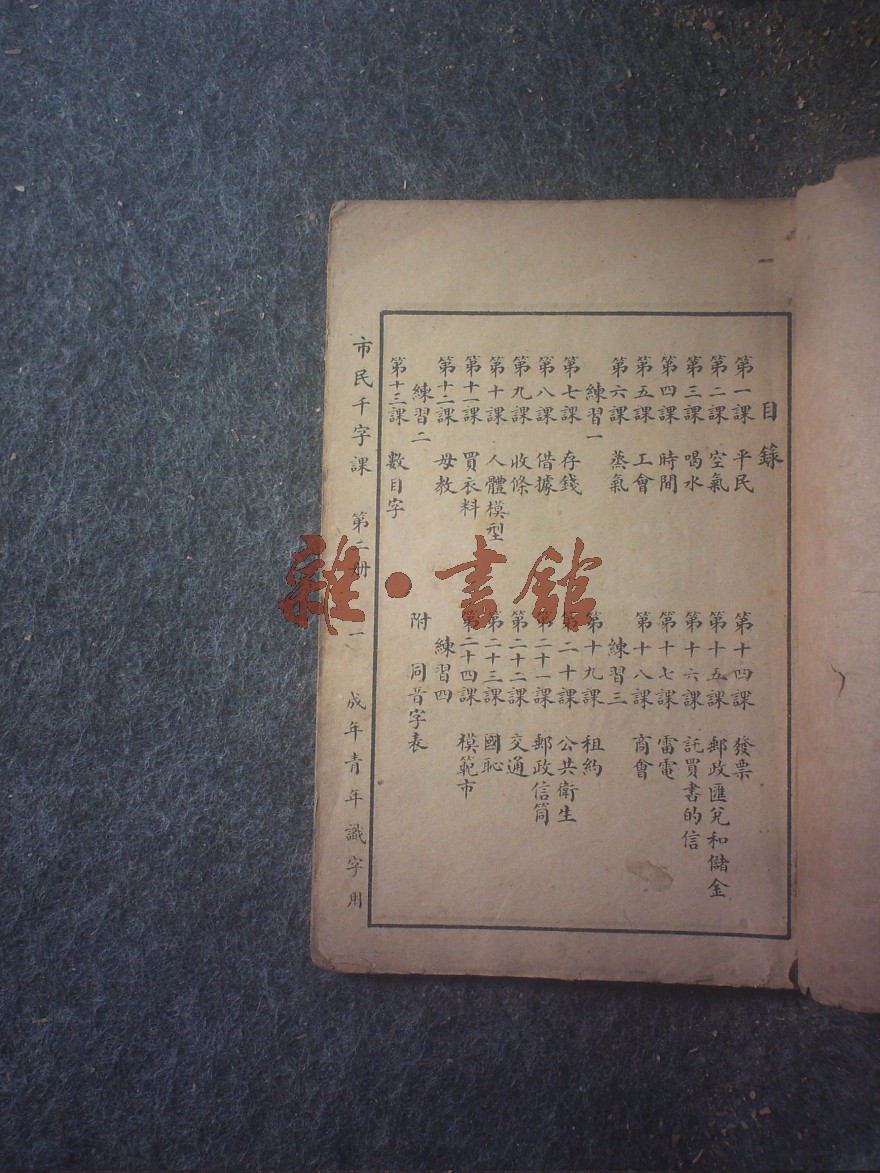 目錄
第一課 平民
第二課 空氣
第三課 喝水
第四課 時間
第五課 工會
第六課 蒸氣
練習一
第七課 存錢
第八課 借據
第九課 收條
第十課 人體模型
第十一課 買衣料
第十二課 母教
練習二
第十三課 數目字
第十四課 發票
第十五課 郵政匯兌和儲金
第十六課 託買書的信
第十七課 雷電
第十八課 商會
練習三
第十九課 租約
第二十課 公共衛生
第二十一課 郵政信筒
第二十二課 交通
第二十三課 國恥
第二十四課 模範市
練習四
附 同音字表
市民千字課 第二册 一 成年青年識字用
雜·書館